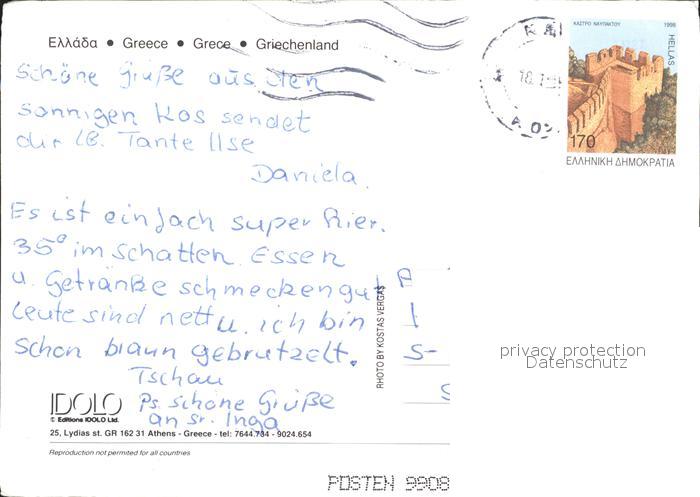 Ελλάδα ● Greece ● Grece ● Griechenland
ΚΑΣΤΡΟ ΝΑΥΠΑΚΤΟΥ 1998
HELLAS
170
ΕΛΛΗΝΙΚΗ ΔΗΜΟΚΡΑΤΙΑ
schöne Grüße aus den
sonnigen Kos sendet
dir lb. Tante Ilse
Daniela.
Es ist einfach super hier.
35° im Schatten. Essen
u. Getränke schmecken gut
Leute sind nett u. ich bin
schon braun gebrutzelt.
Tschau
Ps. schöne Grüße
an sr. Inga
PHOTO BY KOSTAS VERGAS
privacy protection
Datenschutz
IDOLO
© Editions IDOLO Ltd.
25, Lydias st. GR 162 31 Athens - Greece - tel: 7644.734 - 9024.654
Reproduction not permited for all countries
POSTEN 9908